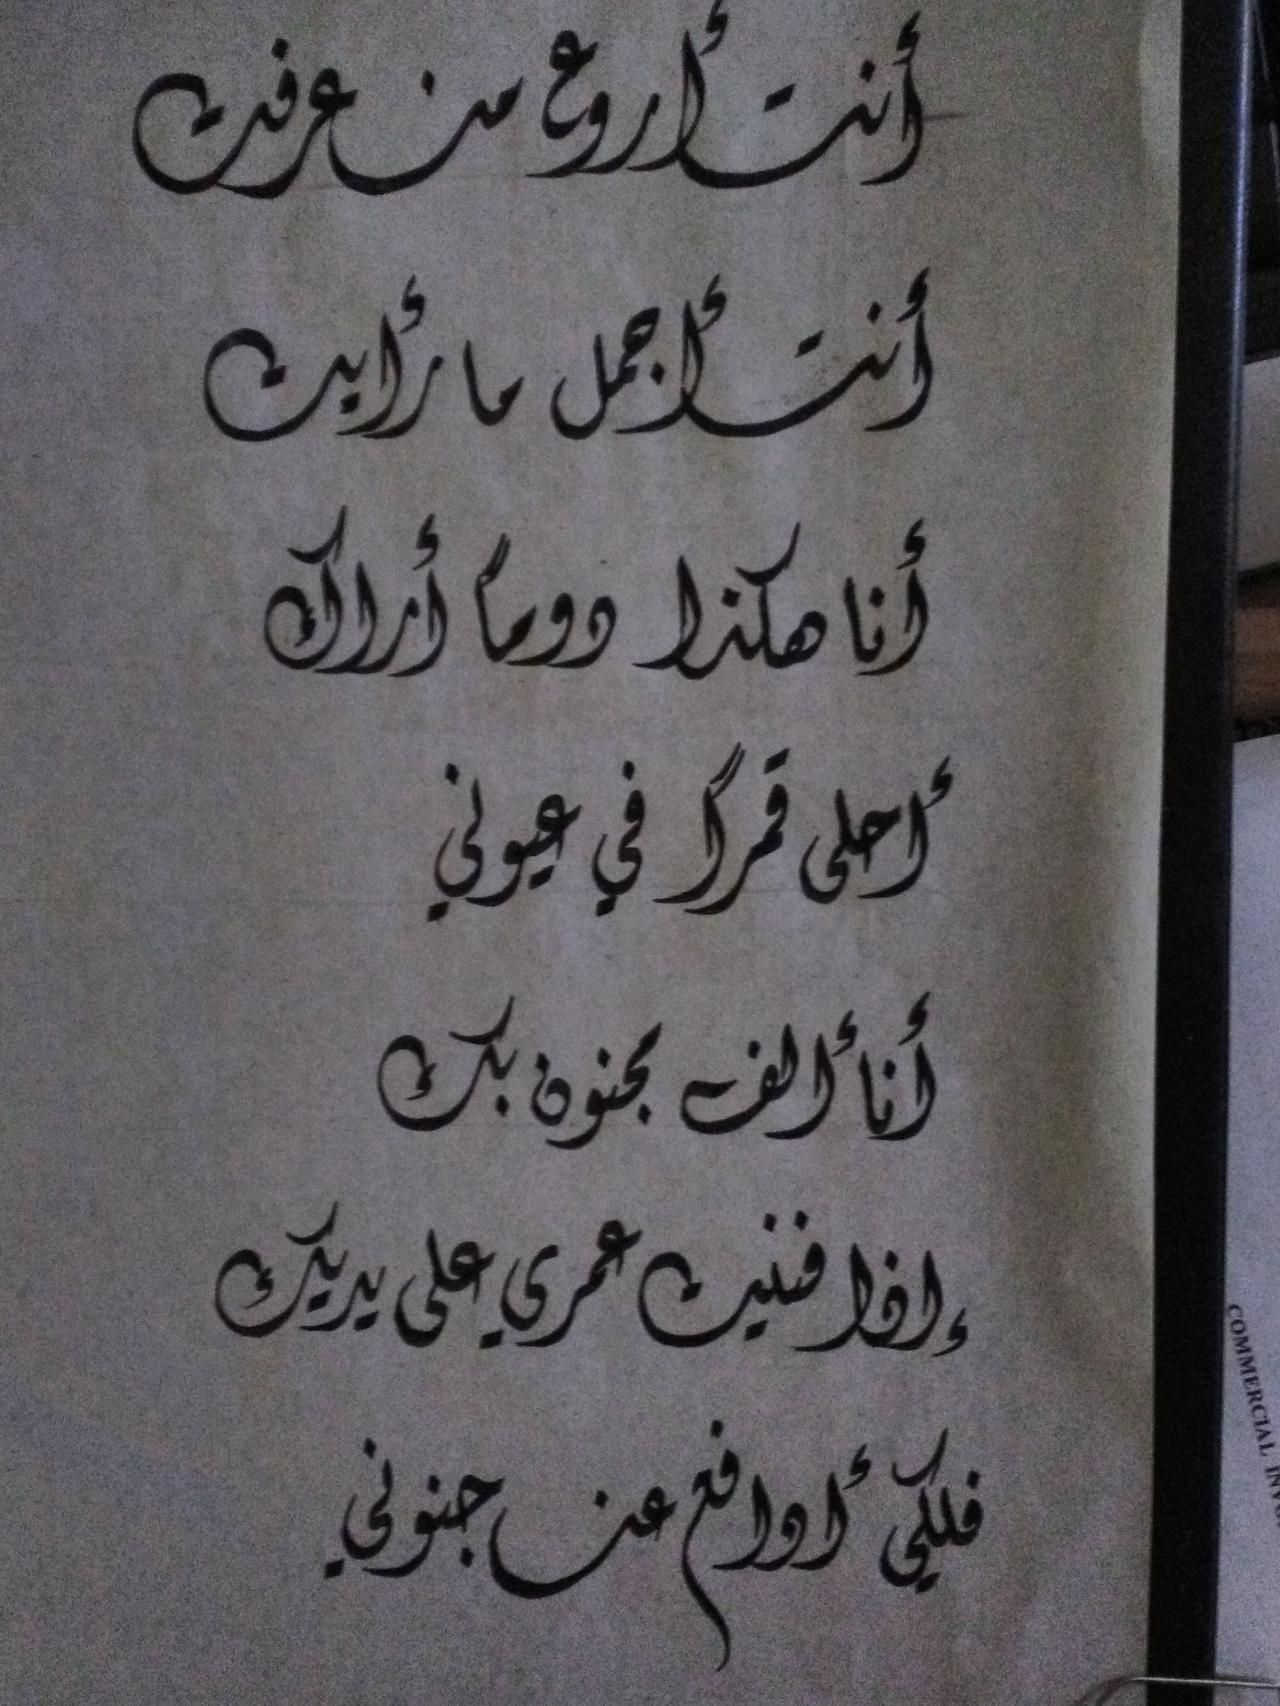 أنت أروع من عرفت
أنت أجمل ما رأيت
أنا هكذا دوماً أراك
أحلى قمراً في عيوني
أنا ألف مجنون بك
إذا فنيت عمري على يديك
فلكي أدافع عن جنوني
COMMERCIAL INVO